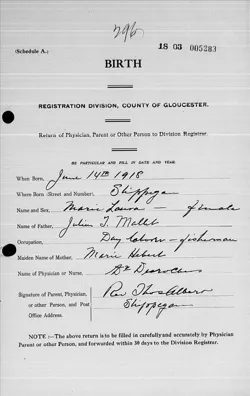 296
(Schedule A.)
18 03 005283
BIRTH
REGISTRATION DIVISION, COUNTY OF GLOUCESTER.
Return of Physician, Parent or Other Person to Division Registrar.
BE PARTICULAR AND FILL IN DATE AND YEAR.
When Born, June 14th 1918
Where Born (Street and Number), Shippegan
Name and Sex, Marie - female
Name of Father, Julien T. Mallet
Occupation, Day laborer - fisherman
Maiden Name of Mother, Marie Hebert
Name of Physician or Nurse,
Signature of Parent, Physician,
or other Person, and Post
Office Address.
Rev Thos Albert
Shippegan
NOTE :—The above return is to be filled in carefully and accurately by Physician
Parent or other Person, and forwarded within 30 days to the Division Registrar.